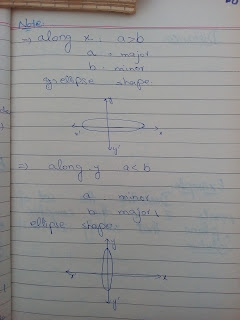 Note:
⇒ along x : a>b
a = major
b - minor
ellipse shape.
x'
y'
⇒ along y a<b
a minor
b major
ellipse shape
y
x
y'